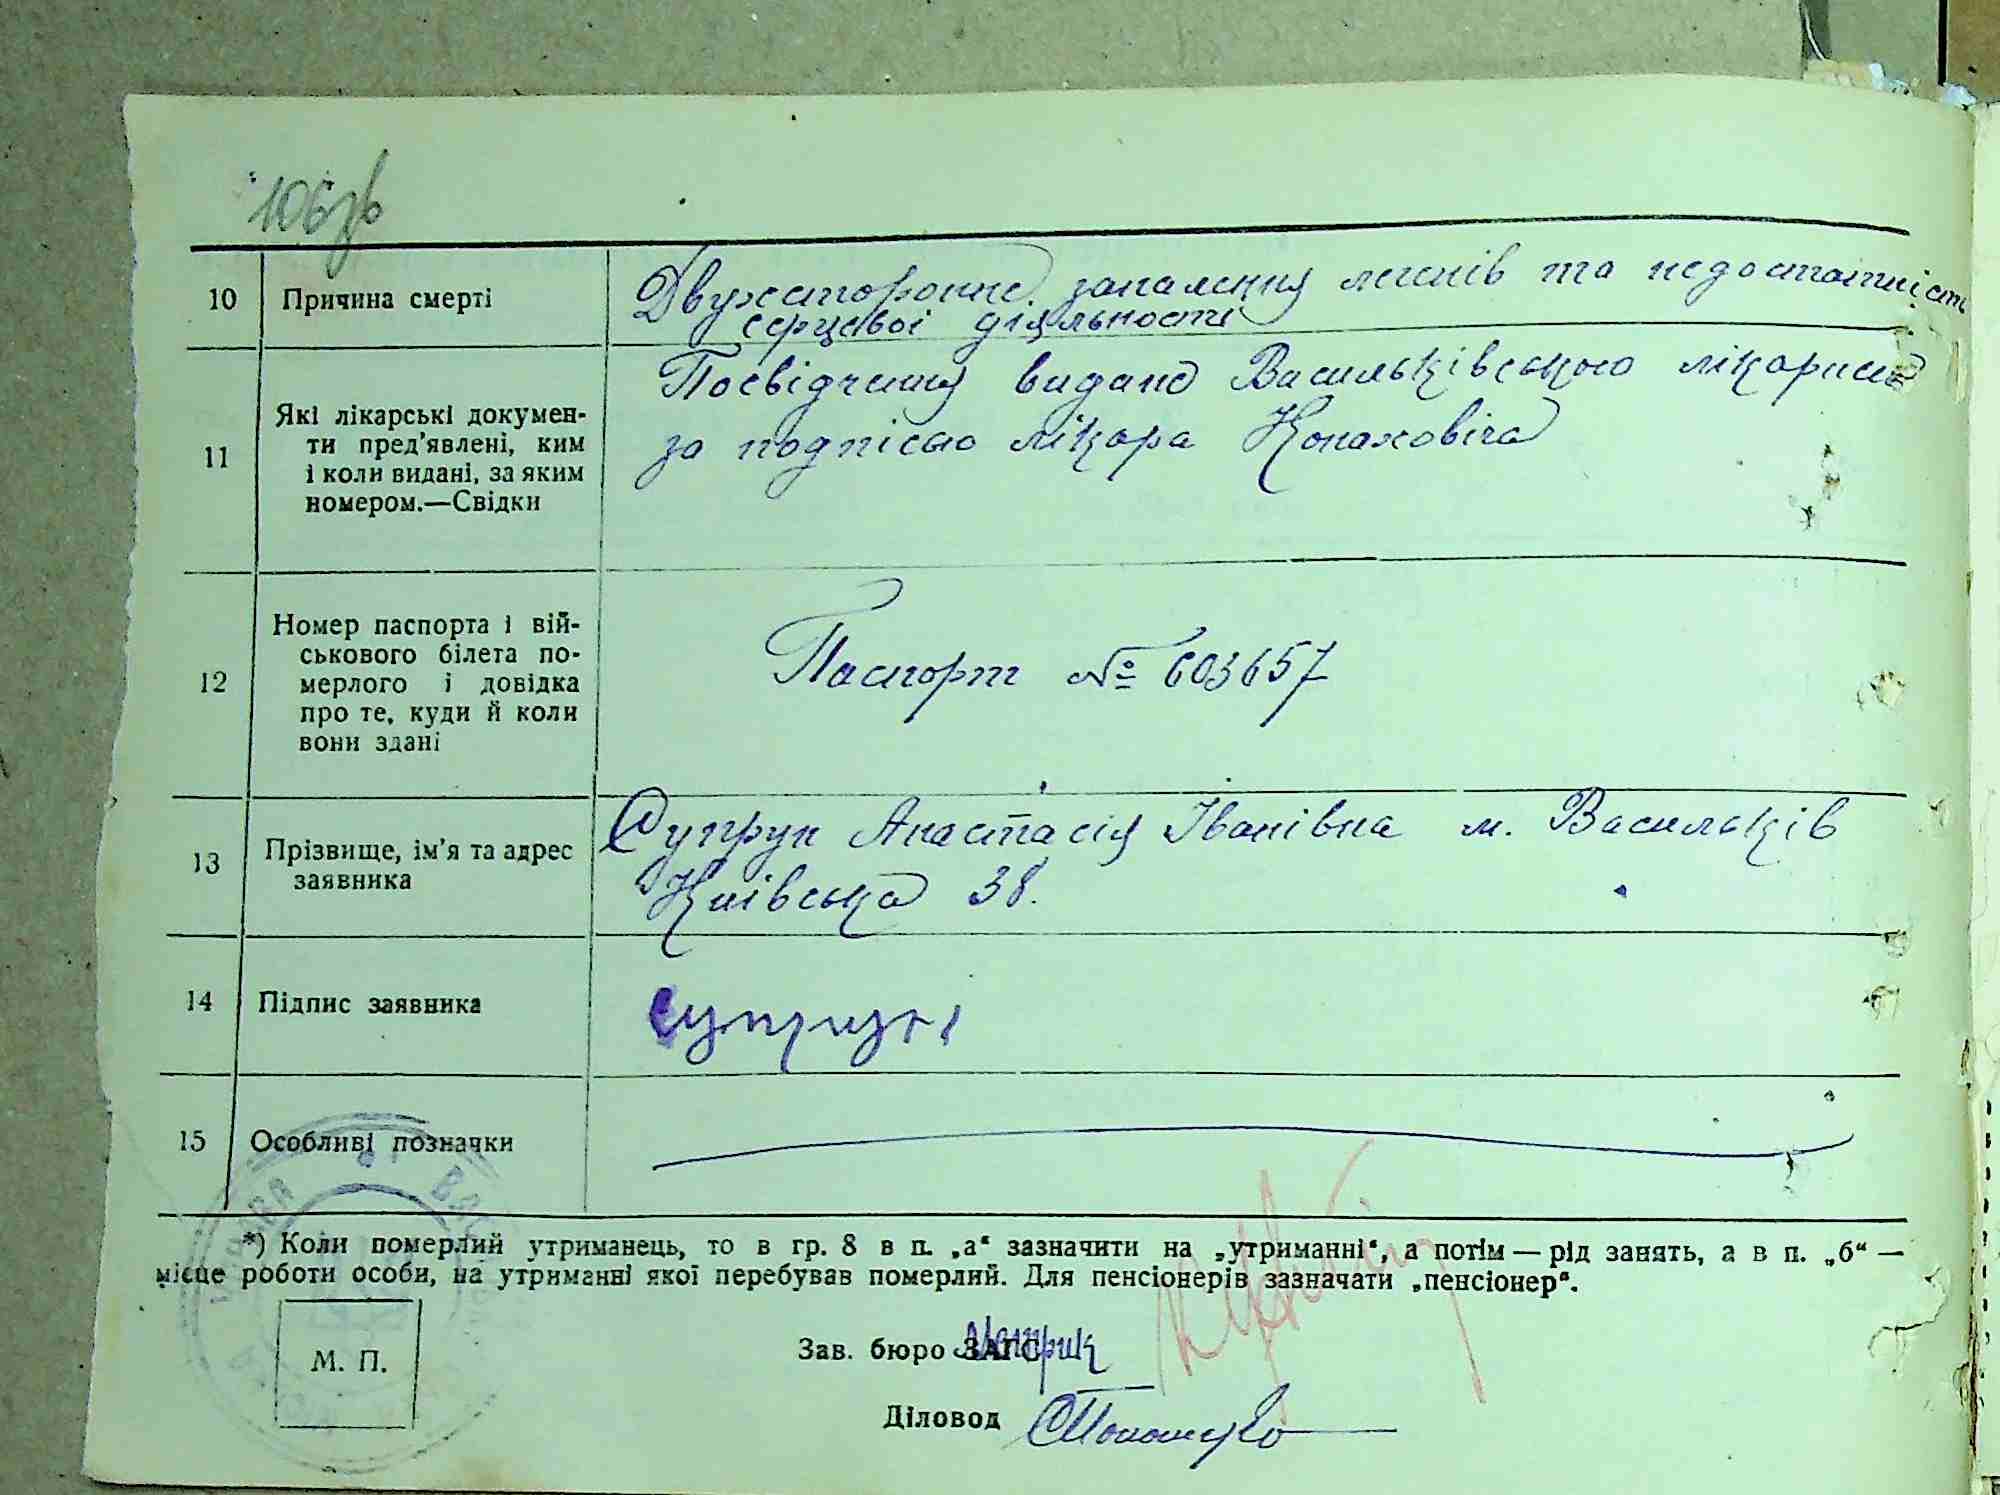 106зв
10 Причина смерті Двухсторонне запалення легенів та недостатність
серцевої діяльности
11 Які лікарські докумен-
ти пред'явлені, ким
і коли видані, за яким
номером.—Свідки
Посвідчення видано Васильківською лікарнею
за подпісью лікара Конаховіча
12 Номер паспорта і вій-
ськового білета по-
мерлого і довідка
про те, куди й коли
вони здані
Паспорт № 603657
13 Прізвище, ім'я та адрес
заявника
Супрун Анастасія Іванівна м. Васильків
Київська 38.
14 Підпис заявника Супрун
15 Особливі позначки
*) Коли померлий утриманець, то в гр. 8 в п. „а“ зазначити на „утриманні“, а потім — рід занять, а в п. „б“ —
місце роботи особи, на утриманні якої перебував померлий. Для пенсіонерів зазначати „пенсіонер“.
М. П.
Зав. бюро ЗАГС
Діловод